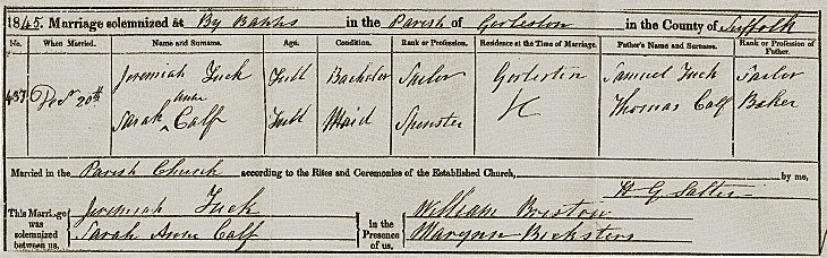 1845. Marriage solemnized at By Banns in the Parish of Gorleston in the County of Suffolk
No. When Married. Name and Surname. Age. Condition. Rank or Profession. Residence at the Time of Marriage. Father's Name and Surname. Rank or Profession of Father.
Jeremiah Tuck Full Bachelor Gorleston Samuel Tuck
437 Decr 20th Sarah Anne Calf Full Maid Spinster Thomas Calf Baker
Married in the Parish Church according to the Rites and Ceremonies of the Established Church, by me,
H G Salter
This Marriage was solemnized between us, Jeremiah Tuck in the Presence of us, William Bristow
Sarah Anne Calf